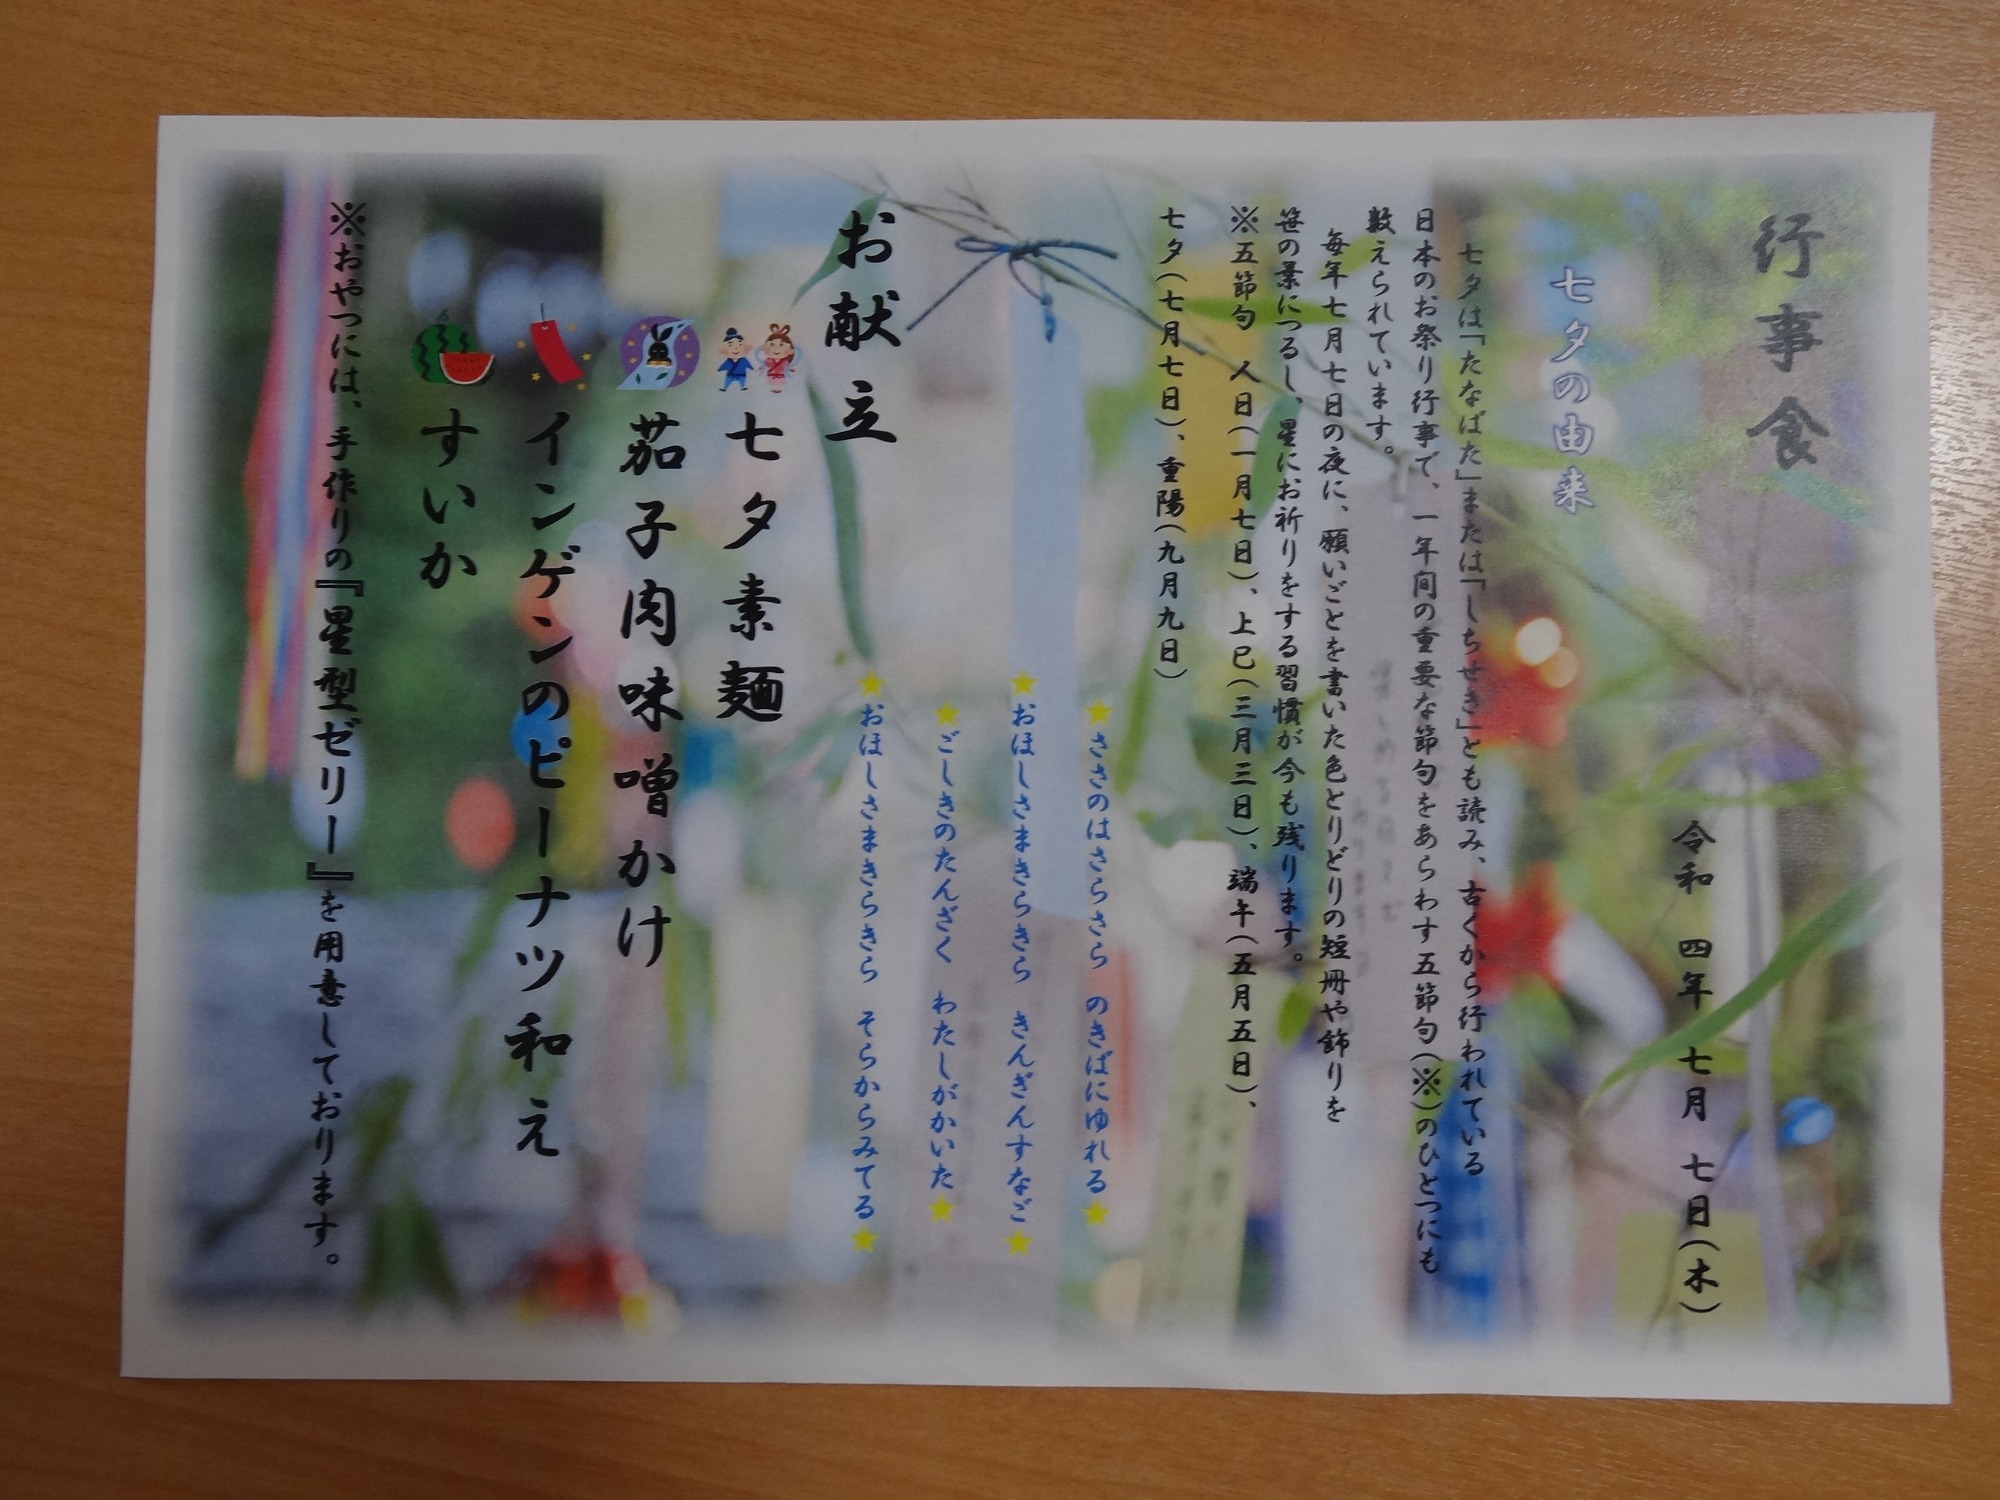 行事食
令和 四年 七月 七日(木)
七夕の由来
七夕は「たなばた」または「しちせき」とも読み、古くから行われている
日本のお祭り行事で、一年間の重要な節句をあらわす五節句(※)のひとつにも
数えられています。
毎年七月七日の夜に、願いごとを書いた色とりどりの短冊や飾りを
笹の葉につるし、星にお祈りをする習慣が今も残ります。
※五節句 人日(一月七日)、上巳(三月三日)、端午(五月五日)、
七夕(七月七日)、重陽(九月九日)
★ささのはさらさら のきばにゆれる★
★おほしさまきらきら きんぎんすなご★
★ごしきのたんざく わたしがかいた★
★おほしさまきらきら そらからみてる★
お献立
七夕素麺
茄子肉味噌かけ
インゲンのピーナツ和え
すいか
※おやつには、手作りの『星型ゼリー』を用意しております。